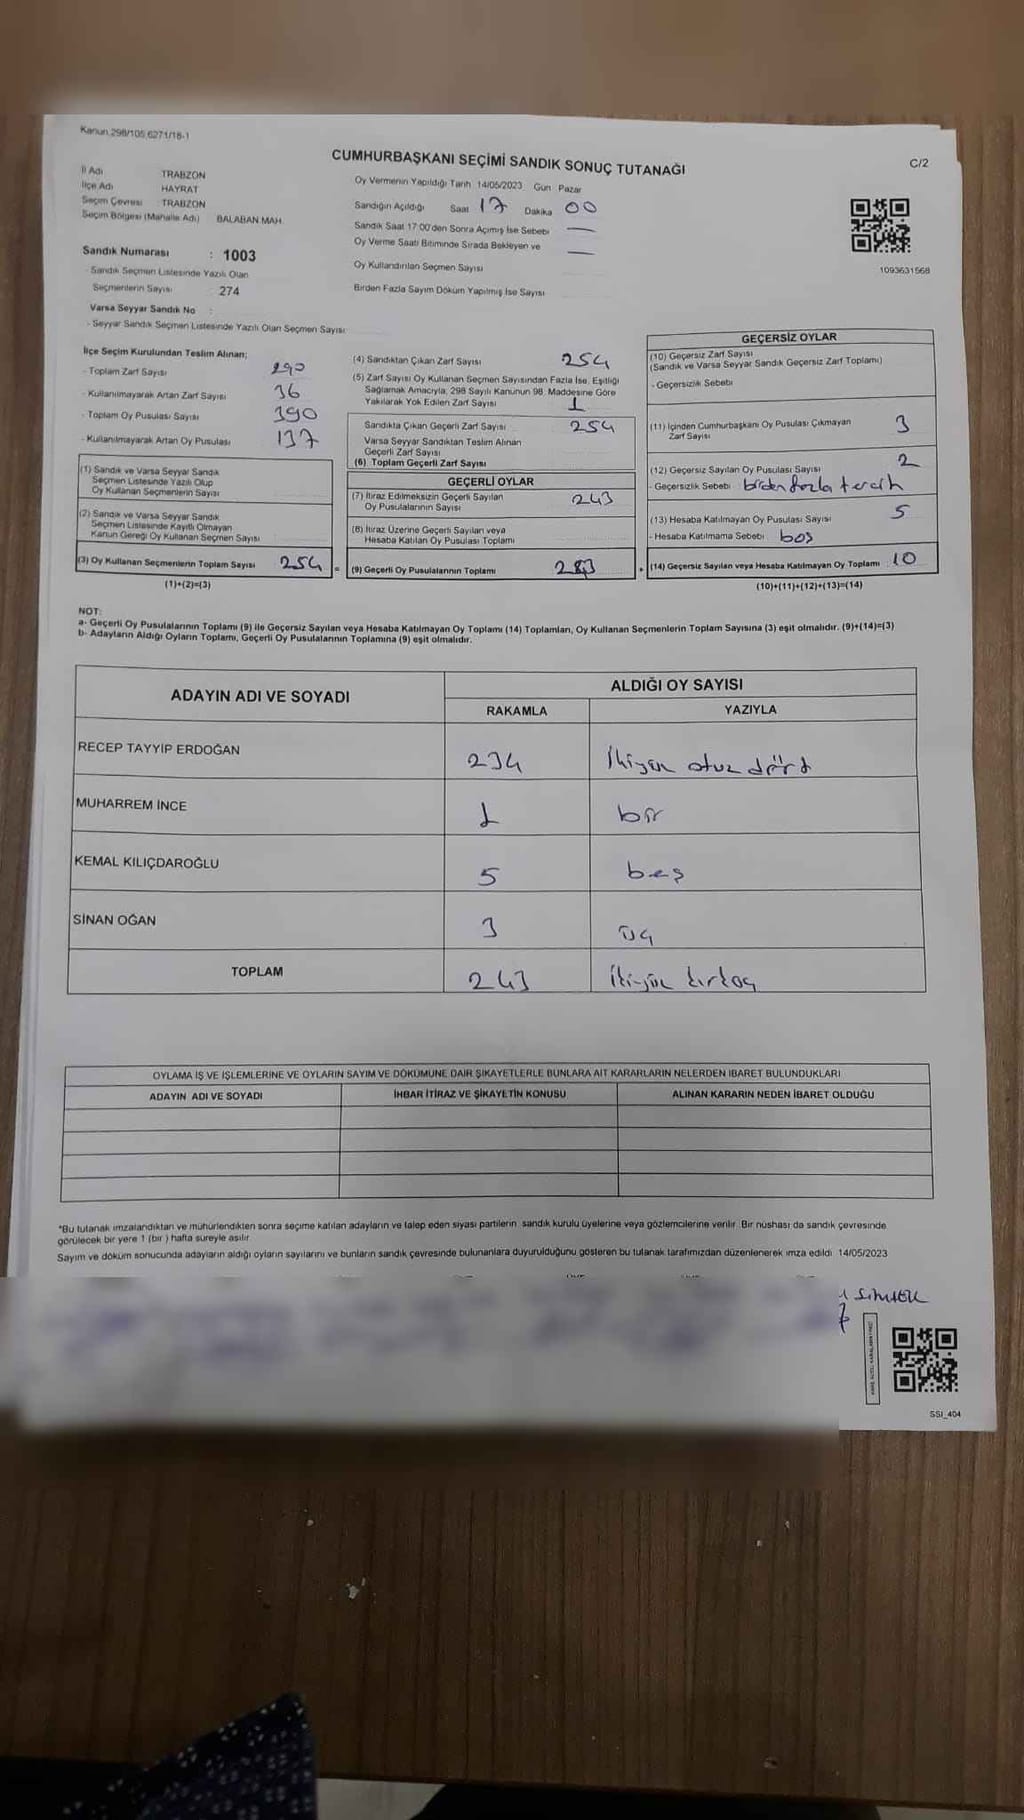 Kanun 298/105,6271/18-1
CUMHURBAŞKANI SEÇİMİ SANDIK SONUÇ TUTANAĞI
C/2
İl Adı TRABZON
İlçe Adı HAYRAT
Seçim Çevresi TRABZON
Seçim Bölgesi (Mahalle Adı) BALABAN MAH.
Sandık Numarası : 1003
- Sandık Seçmen Listesinde Yazılı Olan
Seçmenlerin Sayısı : 274
Varsa Seyyar Sandık No :
- Seyyar Sandık Seçmen Listesinde Yazılı Olan Seçmen Sayısı
Oy Vermenin Yapıldığı Tarih 14/05/2023 Gün Pazar
Sandığın Açıldığı Saat 17 Dakika 00
Sandık Saat 17:00'den Sonra Açımış İse Sebebi —
Oy Verme Saati Bitiminde Sırada Bekleyen ve —
Oy Kullandırılan Seçmen Sayısı
Birden Fazla Sayım Döküm Yapılmış İse Sayısı
1093631568
İlçe Seçim Kurulundan Teslim Alınan;
- Toplam Zarf Sayısı 290
- Kullanılmayarak Artan Zarf Sayısı 36
- Toplam Oy Pusulası Sayısı 390
- Kullanılmayarak Artan Oy Pusulası 137
(1) Sandık ve Varsa Seyyar Sandık
Seçmen Listesinde Yazılı Olup
Oy Kullanan Seçmenlerin Sayısı
(2) Sandık ve Varsa Seyyar Sandık
Seçmen Listesinde Kayıtlı Olmayan
Kanun Gereği Oy Kullanan Seçmen Sayısı
(3) Oy Kullanan Seçmenlerin Toplam Sayısı 254 =
(1)+(2)=(3)
(4) Sandıktan Çıkan Zarf Sayısı 254
(5) Zarf Sayısı Oy Kullanan Seçmen Sayısından Fazla İse, Eşitliği
Sağlamak Amacıyla, 298 Sayılı Kanunun 98. Maddesine Göre
Yakılarak Yok Edilen Zarf Sayısı 1
Sandıkta Çıkan Geçerli Zarf Sayısı 254
Varsa Seyyar Sandıktan Teslim Alınan
Geçerli Zarf Sayısı
(6) Toplam Geçerli Zarf Sayısı
GEÇERLİ OYLAR
(7) İtiraz Edilmeksizin Geçerli Sayılan
Oy Pusulalarının Sayısı 243
(8) İtiraz Üzerine Geçerli Sayılan veya
Hesaba Katılan Oy Pusulası Toplamı
(9) Geçerli Oy Pusulalarının Toplamı 243 +
GEÇERSİZ OYLAR
(10) Geçersiz Zarf Sayısı
(Sandık ve Varsa Seyyar Sandık Geçersiz Zarf Toplamı)
- Geçersizlik Sebebi
(11) İçinden Cumhurbaşkanı Oy Pusulası Çıkmayan
Zarf Sayısı 3
(12) Geçersiz Sayılan Oy Pusulası Sayısı 2
- Geçersizlik Sebebi birden fazla tercih
(13) Hesaba Katılmayan Oy Pusulası Sayısı 5
- Hesaba Katılmama Sebebi boş
(14) Geçersiz Sayılan veya Hesaba Katılmayan Oy Toplamı 10
(10)+(11)+(12)+(13)=(14)
NOT:
a- Geçerli Oy Pusulalarının Toplamı (9) ile Geçersiz Sayılan veya Hesaba Katılmayan Oy Toplamı (14) Toplamları, Oy Kullanan Seçmenlerin Toplam Sayısına (3) eşit olmalıdır. (9)+(14)=(3)
b- Adayların Aldığı Oyların Toplamı, Geçerli Oy Pusulalarının Toplamına (9) eşit olmalıdır.
ADAYIN ADI VE SOYADI ALDIĞI OY SAYISI
RAKAMLA YAZIYLA
RECEP TAYYİP ERDOĞAN 234 İkiyüz otuz dört
MUHARREM İNCE 1 bir
KEMAL KILIÇDAROĞLU 5 beş
SİNAN OĞAN 3 üç
TOPLAM 243 İkiyüz kırküç
OYLAMA İŞ VE İŞLEMLERİNE VE OYLARIN SAYIM VE DÖKÜMÜNE DAİR ŞİKAYETLERLE BUNLARA AİT KARARLARIN NELERDEN İBARET BULUNDUKLARI
ADAYIN ADI VE SOYADI İHBAR İTİRAZ VE ŞİKAYETİN KONUSU ALINAN KARARIN NEDEN İBARET OLDUĞU
*Bu tutanak imzalandıktan ve mühürlendikten sonra seçime katılan adayların ve talep eden siyasi partilerin sandık kurulu üyelerine veya gözlemcilerine verilir. Bir nüshası da sandık çevresinde
görülecek bir yere 1 (bir ) hafta süreyle asılır.
Sayım ve döküm sonucunda adayların aldığı oyların sayılarını ve bunların sandık çevresinde bulunanlara duyurulduğunu gösteren bu tutanak tarafımızdan düzenlenerek imza edildi. 14/05/2023
SSI_404